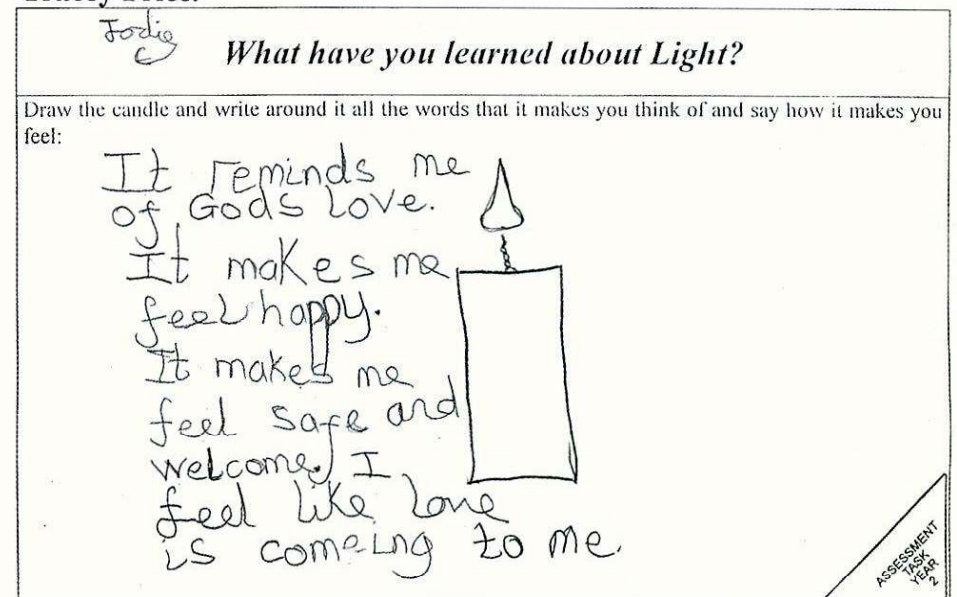 Jodie
C
What have you learned about Light?
Draw the candle and write around it all the words that it makes you think of and say how it makes you
feel:
It reminds me
of Gods Love.
It makes me
feel happy.
It makes me
feel safe and
welcome. I
feel like Love
is comeing to me.
ASSESSMENT
TASK
YEAR
2